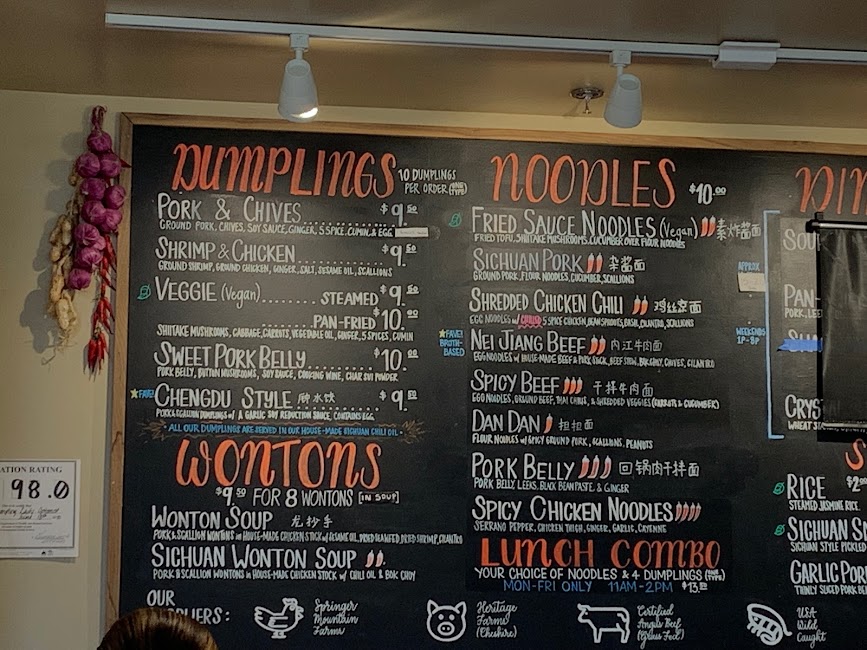 DUMPLINGS
10 DUMPLINGS
PER ORDER (ONE TYPE)
PORK & CHIVES $9.50
GROUND PORK, CHIVES, SOY SAUCE, GINGER, 5 SPICE, CUMIN, & EGG
SHRIMP & CHICKEN $9.50
GROUND SHRIMP, GROUND CHICKEN, GINGER, SALT, SESAME OIL, SCALLIONS
VEGGIE (Vegan) STEAMED $9.50
PAN-FRIED $10.00
SHIITAKE MUSHROOMS, CABBAGE, CARROTS, VEGETABLE OIL, GINGER, 5 SPICES, CUMIN
SWEET PORK BELLY $10.00
PORK BELLY, BUTTON MUSHROOMS, SOY SAUCE, COOKING WINE, CHAR SUI POWDER
★FAVE!
CHENGDU STYLE 水饺 $9.50
PORK & SCALLION DUMPLINGS w/ A GARLIC SOY REDUCTION SAUCE, CONTAINS EGG
ALL OUR DUMPLINGS ARE SERVED IN OUR HOUSE-MADE SICHUAN CHILI OIL
WONTONS
$9.50 FOR 8 WONTONS [IN SOUP]
WONTON SOUP 龙抄手
PORK & SCALLION WONTONS IN HOUSE-MADE CHICKEN STOCK w/ SESAME OIL, DRIED SEAWEED, DRIED SHRIMP, CILANTRO
SICHUAN WONTON SOUP
PORK & SCALLION WONTONS IN HOUSE-MADE CHICKEN STOCK w/ CHILI OIL & BOK CHOY
NOODLES $10.00
FRIED SAUCE NOODLES (Vegan) 素炸酱面
FRIED TOFU, SHIITAKE MUSHROOMS, CUCUMBER OVER FLOUR NOODLES
SICHUAN PORK 杂酱面
GROUND PORK, FLOUR NOODLES, CUCUMBER, SCALLIONS
SHREDDED CHICKEN CHILI 鸡丝凉面
EGG NOODLES w/ CHILLED 5 SPICE CHICKEN, BEAN SPROUTS, BASIL, CILANTRO, SCALLIONS
★FAVE!
BROTH-
BASED
NEI JIANG BEEF 内江牛肉面
EGG NOODLES w/ HOUSE-MADE BEEF & PORK STOCK, BEEF STEW, BOK CHOY, CHIVES, CILANTRO
SPICY BEEF 干拌牛肉面
EGG NOODLES, GROUND BEEF, THAI CHILIS, & SHREDDED VEGGIES (CARROTS & CUCUMBER)
DAN DAN 担担面
FLOUR NOODLES w/ SPICY GROUND PORK, SCALLIONS, PEANUTS
PORK BELLY 回锅肉干拌面
PORK BELLY, LEEKS, BLACK BEAN PASTE & GINGER
SPICY CHICKEN NOODLES
SERRANO PEPPER, CHICKEN THIGH, GINGER, GARLIC, CAYENNE
LUNCH COMBO
YOUR CHOICE OF NOODLES & 4 DUMPLINGS (ONE TYPE)
MON-FRI ONLY 11AM-2PM $13.50
DIN
APPROX
WEEKENDS
1P-8P
SOU
PAN-
PORK, LEE
CRYS
WHEAT
S
RICE $2
STEAMED JASMINE RICE
SICHUAN S
SICHUAN STYLE PICKLED
GARLIC PORK
THINLY SLICED PORK
OUR
SUPPLIERS:
Springer
Mountain
Farms
Heritage
Farms
(Cheshire)
Certified
Angus Beef
(Grass Fed)
USA
Wild
Caught
ATION RATING
98.0